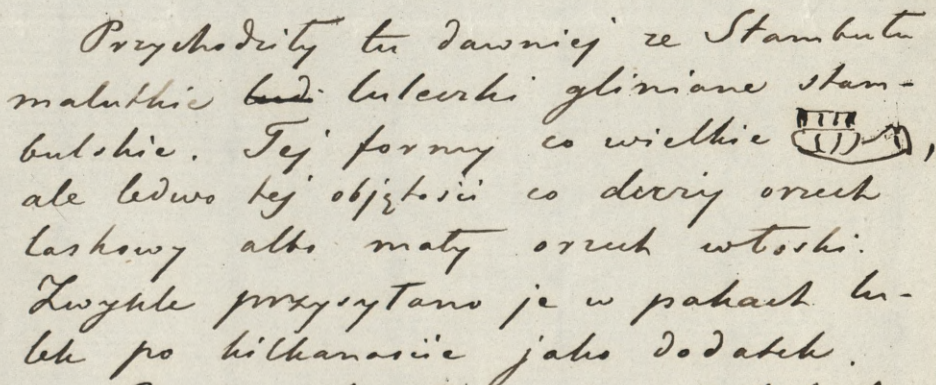 Przychodziły tu dawniej ze Stambułu
malutkie luleczki gliniane stam-
bulskie. Tej formy co wielkie ,
ale ledwo tej objętości co duży orzech
laskowy albo mały orzech włoski.
Zwykle przysyłano je w pakach lu-
lek po kilkanaście jako dodatek.